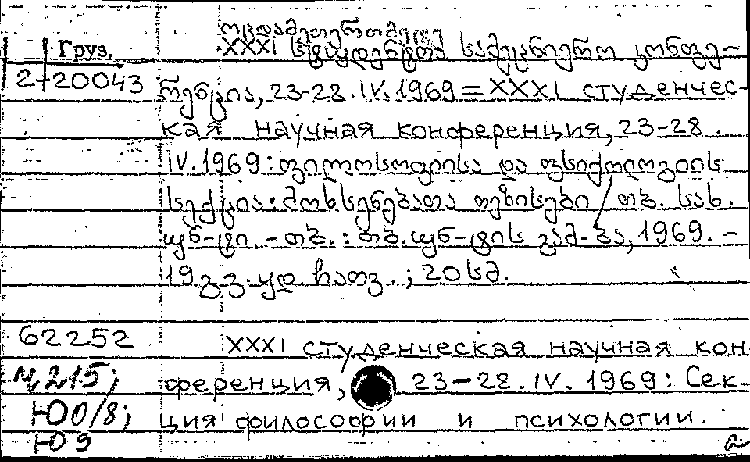 ოცდამეთერთმეტე
Груз. XXXI სტუდენტთა სამეცნიერო კონფე-
2-20043 რენცია, 23-28.IV.1969 = XXXI студенчес-
кая научная конференция, 23-28.
IV.1969: ფილოსოფიისა და ფსიქოლოგიის
სექცია: მოხსენებათა თეზისები / თბ. სახ.
უნ-ტი. - თბ.: თბ. უნ-ტის გამ-ბა, 1969. -
19 გვ. ყდ ჩათვ.; 20 სმ.
62252 XXXI студенческая научная кон-
Ч215; ференция, 23-28.IV.1969: Сек-
Ю0/8; ция философии и психологии.
Ю9